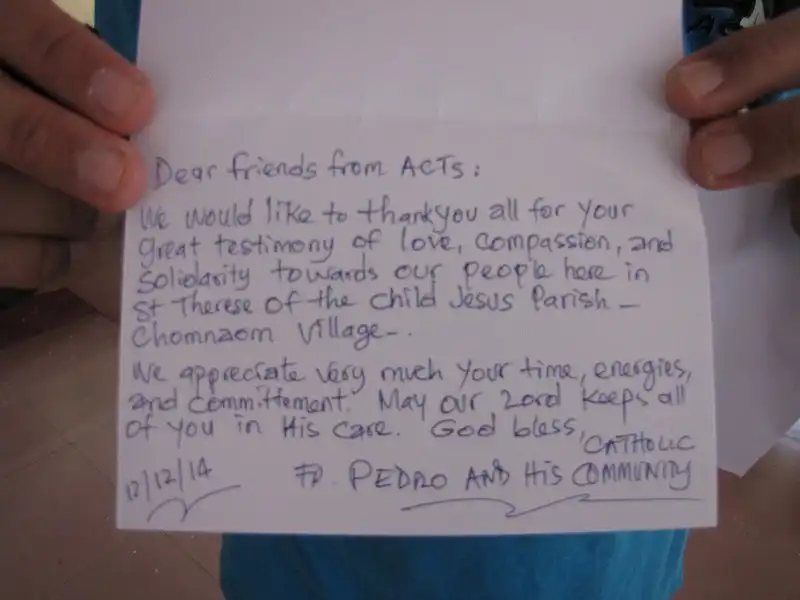 Dear friends from ACTs:
We would like to thankyou all for your
great testimony of love, compassion, and
solidarity towards our people here in
St Therese of the Child Jesus Parish -
Chomnaom Village-.
We appreciate very much your time, energies,
and committement. May our Lord keeps all
of you in His care. God bless,
CATHOLIC
12/12/14 Fr. PEDRO AND HIS COMMUNITY